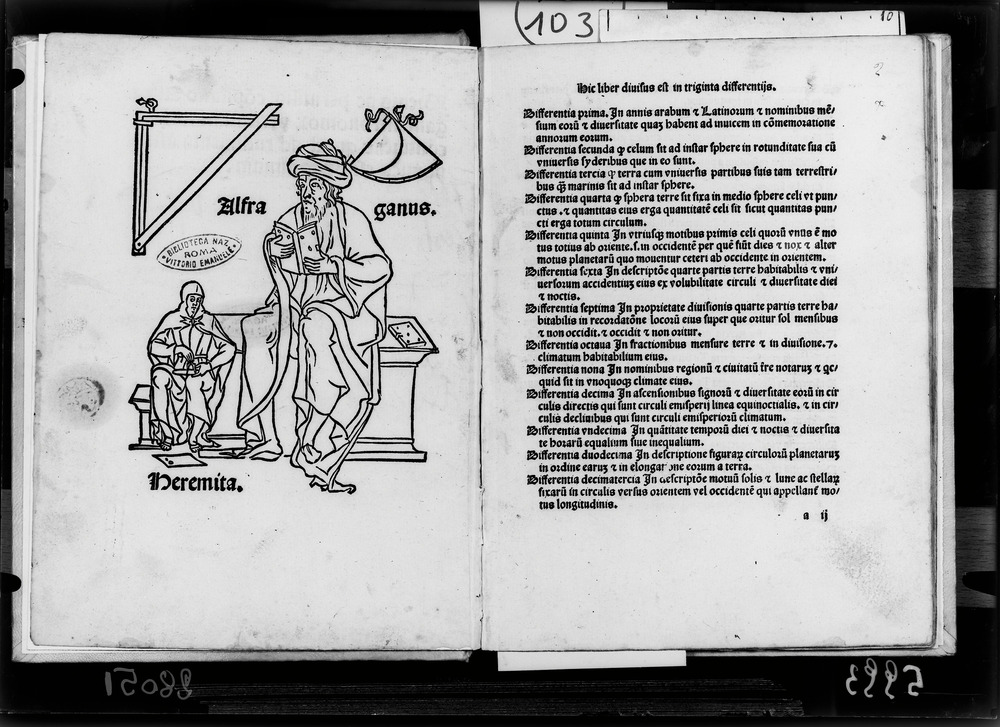 (103)
10
Alfra ganus.
BIBLIOTECA NAZ.
ROMA
VITTORIO EMANUELE
Heremita.
Hic liber diuisus est in triginta differentijs.
Differentia prima. In annis arabum ⁊ Latinorum ⁊ nominibus mẽ/
sium eorũ ⁊ diuersitate quaꝝ habent ad inuicem in cõmemoratione
annorum eorum.
Differentia secunda ꝙ celum sit ad instar sphere in rotunditate sua cũ
vniuersis syderibus que in eo sunt.
Differentia tercia ꝙ terra cum vniuersis partibus suis tam terrestri/
bus ꝙ̃ marinis sit ad instar sphere.
Differentia quarta ꝙ sphera terre sit fixa in medio sphere celi vt pun/
ctus .⁊ quantitas eius erga quantitatẽ celi sit sicut quantitas pun/
cti erga totum circulum.
Differentia quinta In vtriusqꝫ motibus primis celi quorũ vnus ẽ mo
tus totius ab oriente.s.in occidentẽ per quẽ fiũt dies ⁊ nox ⁊ alter
motus planetarũ quo mouentur ceteri ab occidente in orientem.
Differentia sexta In descriptõe quarte partis terre habitabilis ⁊ vni/
uersorum accidentiuꝫ eius ex volubilitate circuli ⁊ diuersitate diei
⁊ noctis.
Differentia septima In proprietate diuisionis quarte partis terre ha/
bitabilis in recordatõne locorũ eius super que oritur sol mensibus
⁊ non occidit. ⁊ occidit ⁊ non oritur.
Differentia octaua In fractionibus mensure terre ⁊ in diuisione .7.
climatum habitabilium eius.
Differentia nona In nominibus regionũ ⁊ ciuitatũ t̃re notaruꝫ ⁊ qc/
quid sit in vnoquoqꝫ climate eius.
Differentia decima In ascensionibus signorũ ⁊ diuersitate eorũ in cir
culis directis qui sunt circuli emisperij linea equinoctialis. ⁊ in cir/
culis decliuibus qui sunt circuli emisperiorũ climatum.
Differentia vndecima In quãtitate temporũ diei ⁊ noctis ⁊ diuersita
te horarũ equalium siue inequalium.
Differentia duodecima In descriptione figuraꝝ circulorũ planetaruꝫ
in ordine earuꝫ ⁊ in elongatione eorum a terra.
Differentia decimatercia In descriptõe motuũ solis ⁊ lune ac stellaꝝ
fixarũ in circulis versus orientem vel occidentẽ qui appellant̃ mo/
tus longitudinis.
a ij
28051
5993